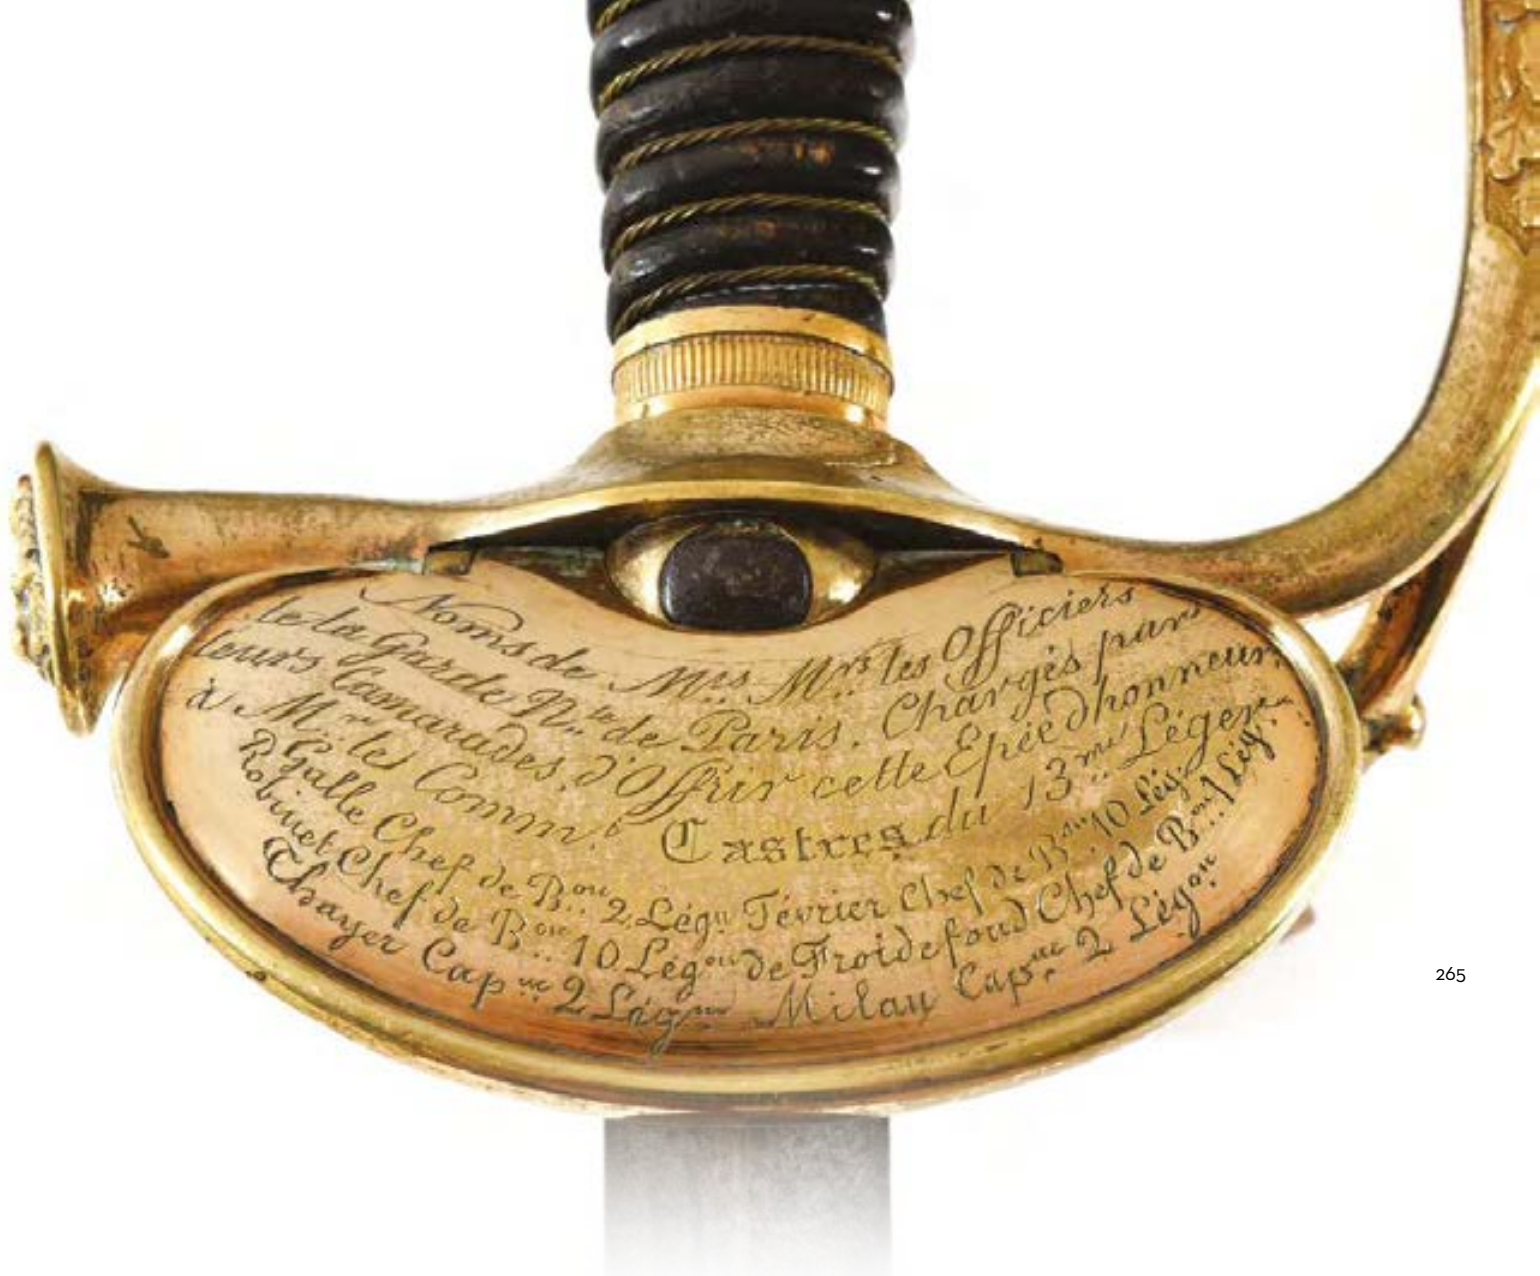 Noms de Mrs. Mrs. les Officiers
de la Garde Nle de Paris. Chargés par
leurs Camarades, d'Offrir cette Epée d'honneur,
à Mr le Comm.t Castres du 13me Léger
Pgalle Chef de Bon 2 Légn Février Chef de Bon 10 Lég.
Robinet Chef de Bon 10 Légon de Froidefond Chef de Bon 1 Lég.
Thayer Capne 2 Légon Milau Capne 2 Légon
265